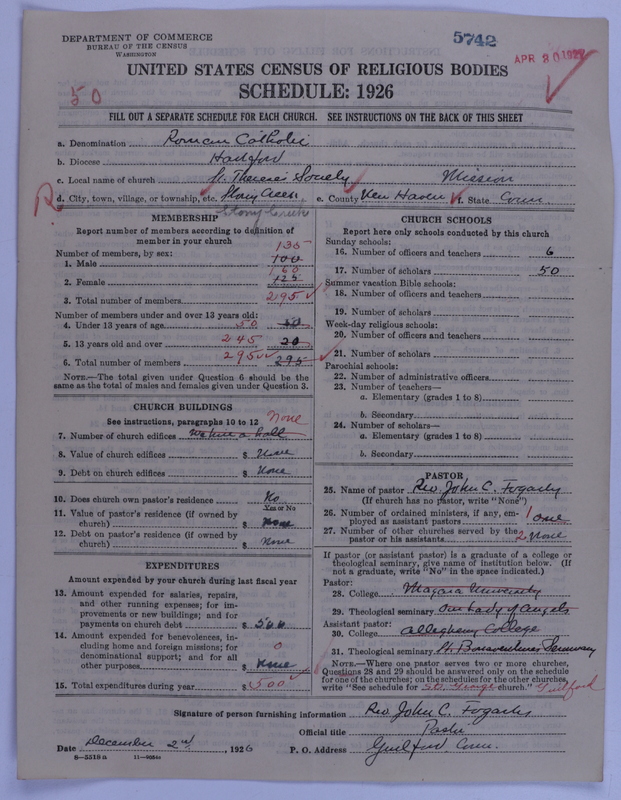 DEPARTMENT OF COMMERCE
BUREAU OF THE CENSUS
WASHINGTON
5742
APR 20 1927
50
UNITED STATES CENSUS OF RELIGIOUS BODIES
SCHEDULE: 1926
FILL OUT A SEPARATE SCHEDULE FOR EACH CHURCH. SEE INSTRUCTIONS ON THE BACK OF THIS SHEET
a. Denomination Roman Catholic
b. Diocese Hartford
c. Local name of church St. Thereses Mission
d. City, town, village, or township, etc. Stony Creek e. County New Haven f. State Conn.
Stony Creek
MEMBERSHIP
Report number of members according to definition of
member in your church
Number of members, by sex:
135
1. Male 100
160
2. Female 125
3. Total number of members 295
Number of members under and over 13 years old:
4. Under 13 years of age 50 50
5. 13 years old and over 245 20
6. Total number of members 295 295
NOTE.—The total given under Question 6 should be the
same as the total of males and females given under Question 3.
CHURCH BUILDINGS
See instructions, paragraphs 10 to 12 None
7. Number of church edifices a hall
8. Value of church edifices $ None
9. Debt on church edifices $ None
10. Does church own pastor's residence No
Yes or No
11. Value of pastor's residence (if owned by
church) $ None
12. Debt on pastor's residence (if owned by
church) $ None
EXPENDITURES
Amount expended by your church during last fiscal year
13. Amount expended for salaries, repairs,
and other running expenses; for im-
provements or new buildings; and for
payments on church debt $ 500
14. Amount expended for benevolences, in-
cluding home and foreign missions; for
denominational support; and for all
other purposes $ None
0
15. Total expenditures during year $ 500
CHURCH SCHOOLS
Report here only schools conducted by this church
Sunday schools:
16. Number of officers and teachers 6
17. Number of scholars 50
Summer vacation Bible schools:
18. Number of officers and teachers
19. Number of scholars
Week-day religious schools:
20. Number of officers and teachers
21. Number of scholars
Parochial schools:
22. Number of administrative officers
23. Number of teachers—
a. Elementary (grades 1 to 8)
b. Secondary
24. Number of scholars—
a. Elementary (grades 1 to 8)
b. Secondary
PASTOR
25. Name of pastor Rev. John C. Fogarty
(If church has no pastor, write "None")
26. Number of ordained ministers, if any, em-
ployed as assistant pastors 1 one
27. Number of other churches served by the
pastor or his assistants 2 None
If pastor (or assistant pastor) is a graduate of a college or
theological seminary, give name of institution below. (If
not a graduate, write "No" in the space indicated.)
Pastor:
28. College Niagara University
29. Theological seminary Our Lady of Angels
Assistant pastor:
30. College Allegheny College
31. Theological seminary St. Bonaventures Seminary
NOTE.—Where one pastor serves two or more churches,
Questions 28 and 29 should be answered only on the schedule
for one of the churches; on the schedules for the other churches,
write "See schedule for St. George church." Guilford
Signature of person furnishing information Rev. John C. Fogarty
Official title Pastor
Date December 2nd, 1926 P. O. Address Guilford Conn.
8—5518a 11—9056